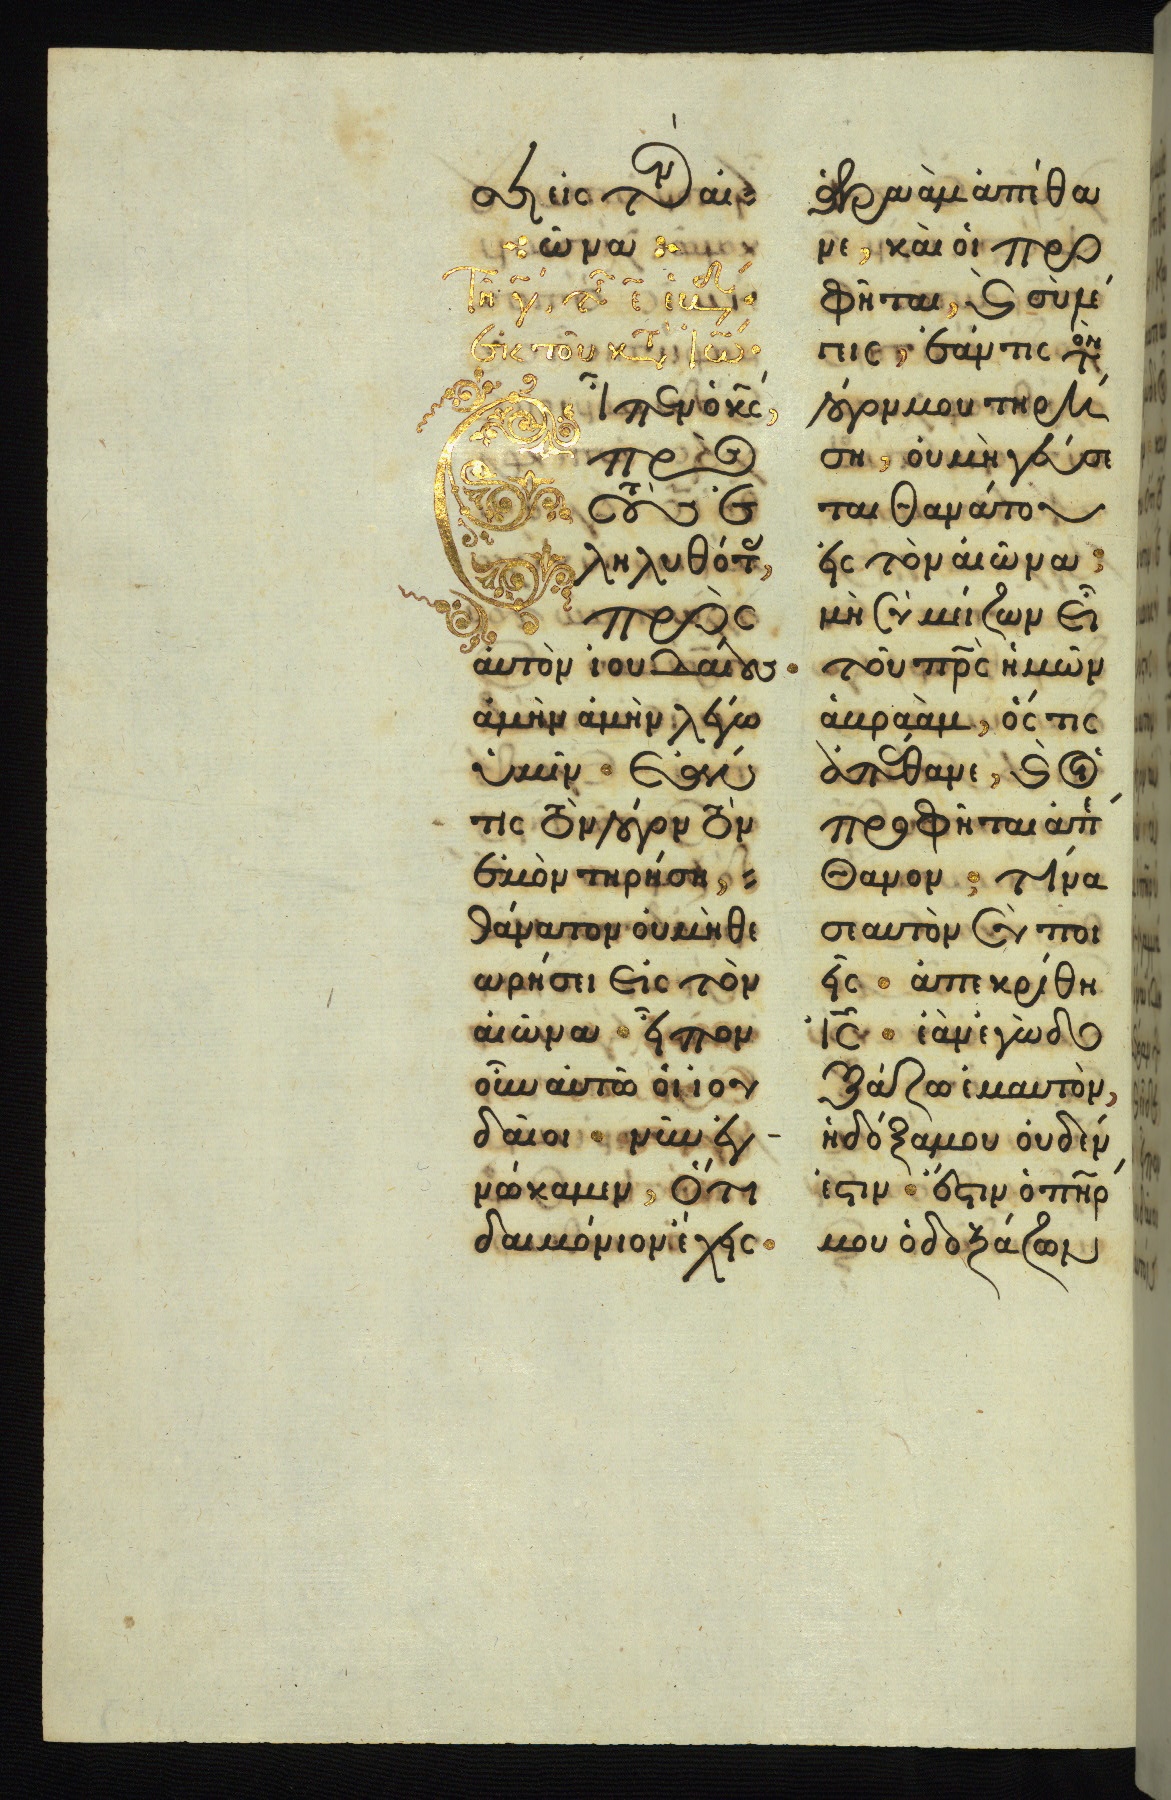 εἰς τὸν αἰ
ῶνα
Τῇ γ´ τῆς ε´ ἑβδ´
ἐκ τοῦ κατ Ἰω
Εἶπεν ὁ κς,
πρὸς
τοὺς ἐ
ληλυθότας,
πρὸς
ἀυτὸν ἰουδαίους·
ἀμὴν ἀμὴν λέγω
ὑμῖν· ἐάν
τις τὸν λόγον τὸν
ἐμὸν τηρήση,
θάνατον οὐ μὴ θε
ωρήσει εἰς τὸν
αἰῶνα· εἶπον
οὖν αὐτῶ οἱ ἰου
δαῖοι· νῦν ἐγ-
νώκαμεν, ὅτι
δαιμόνιον ἔχεις·
ἀβραὰμ ἀπέθα
νε, καὶ οἱ προ
φῆται, καὶ σὺ λέ
γεις, ἐάν τις τὸν
λόγον μου τηρή
ση, οὐ μὴ γεύσε
ται θανάτου
εἰς τὸν αἰῶνα;
μὴ σὺ μείζων εἶ
τοῦ πρς ἡμῶν
ἀβραὰμ, ὅς τις
ἀπέθανε, καὶ οἱ
προφῆται ἀπέ
θανον; τίνα
σεαυτὸν σὺ ποι
εῖς· ἀπεκρίθη
ις· ἐὰν ἐγὼ δο
ξάζω ἐμαυτὸν,
ἡ δόξα μου οὐδέν
ἐστιν· ἔστιν ὁ πηρ
μου ὁ δοξάζων